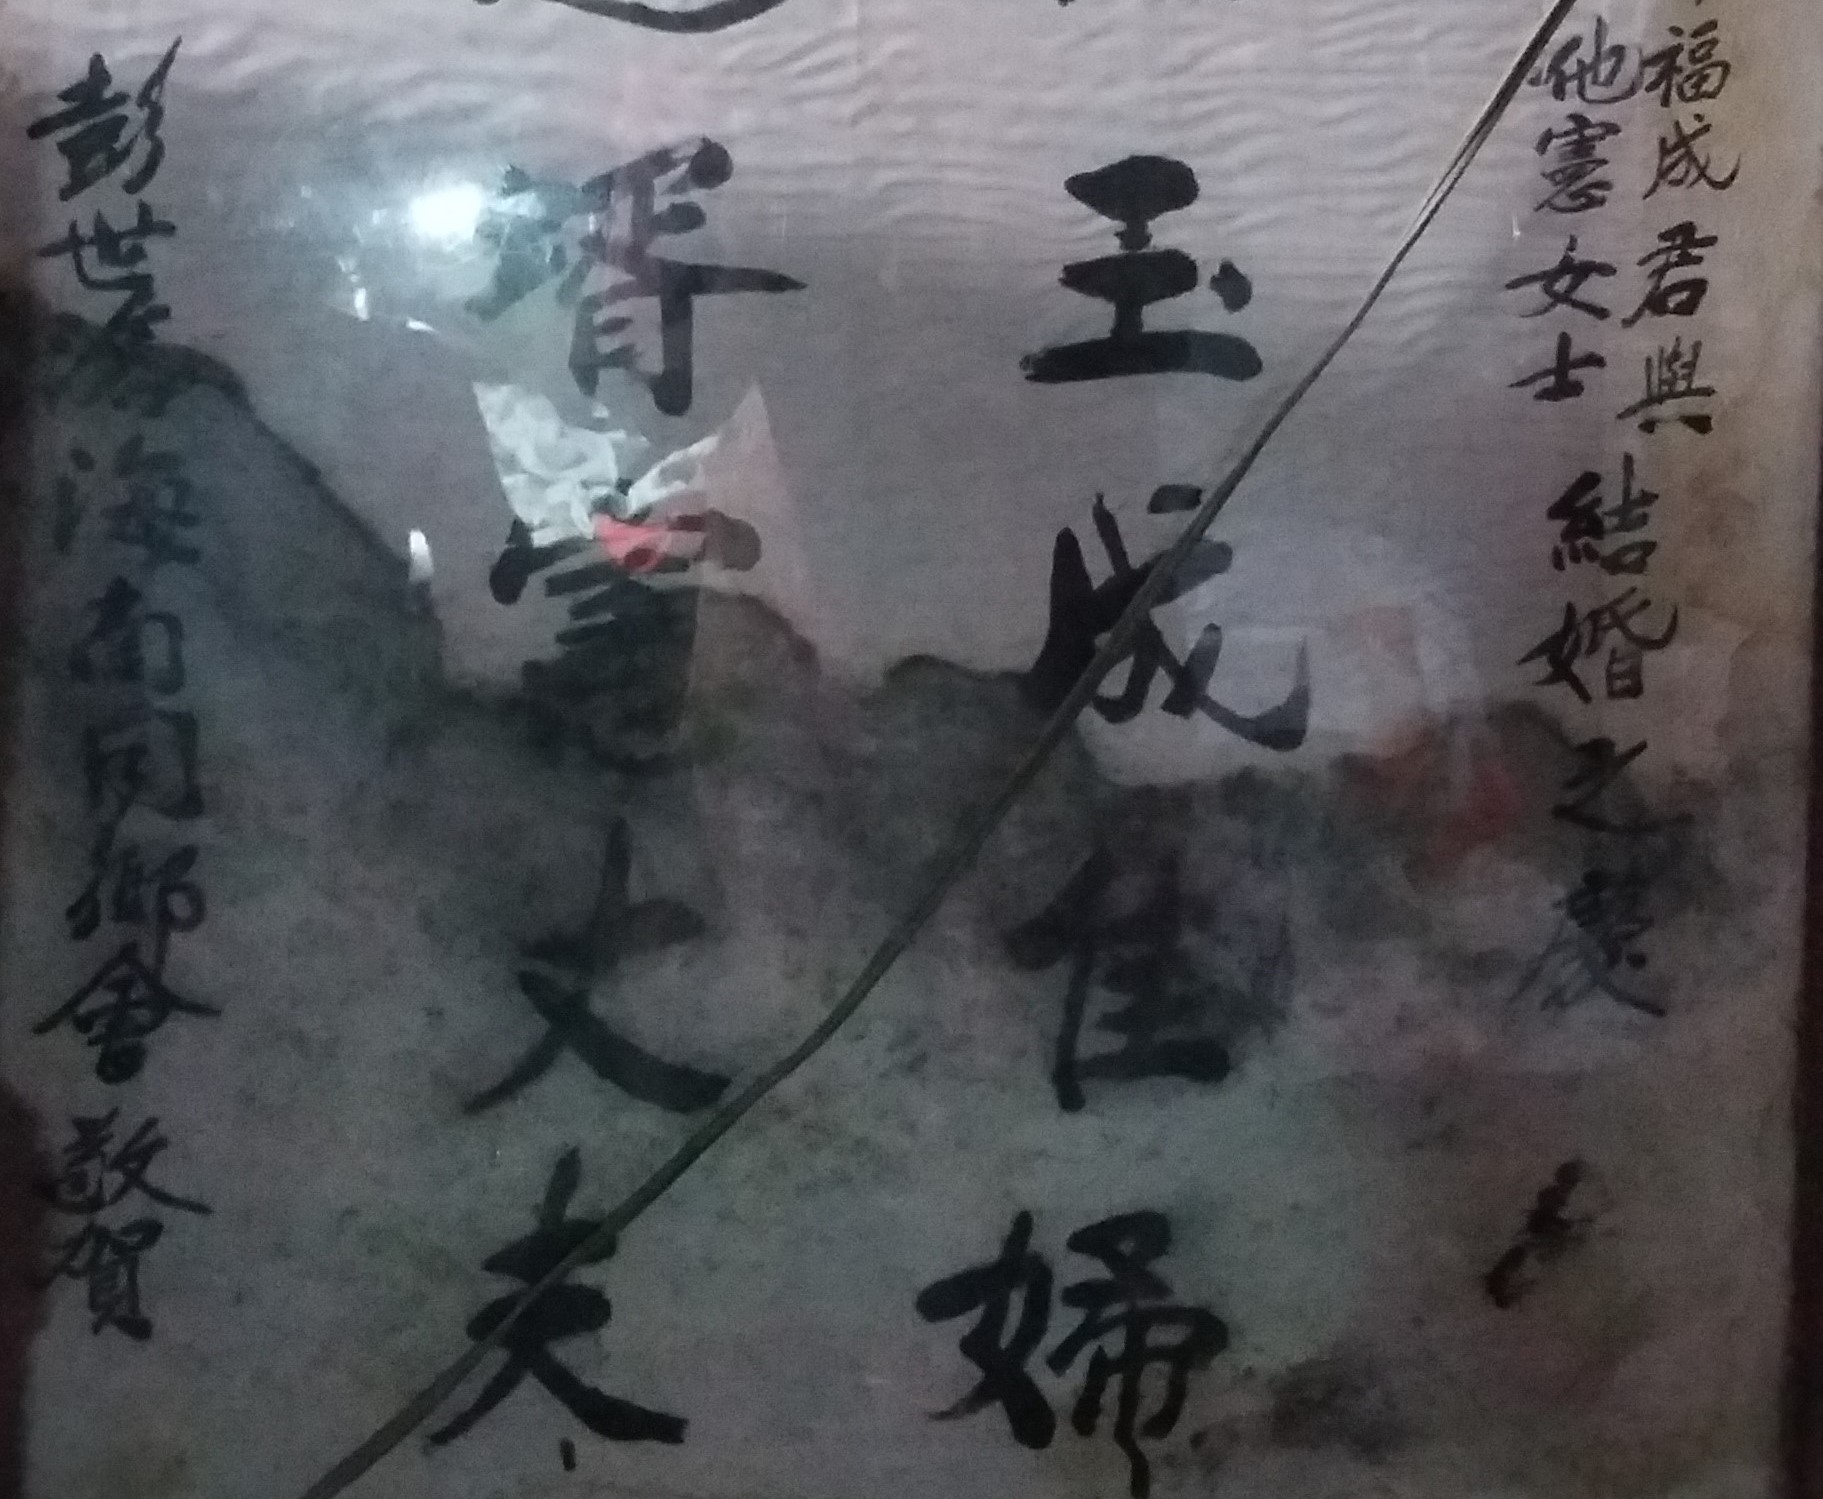 福成君與
他憲女士結婚之慶
玉成佳婦
壻寔大夫
彭世 海南同鄉會敬賀